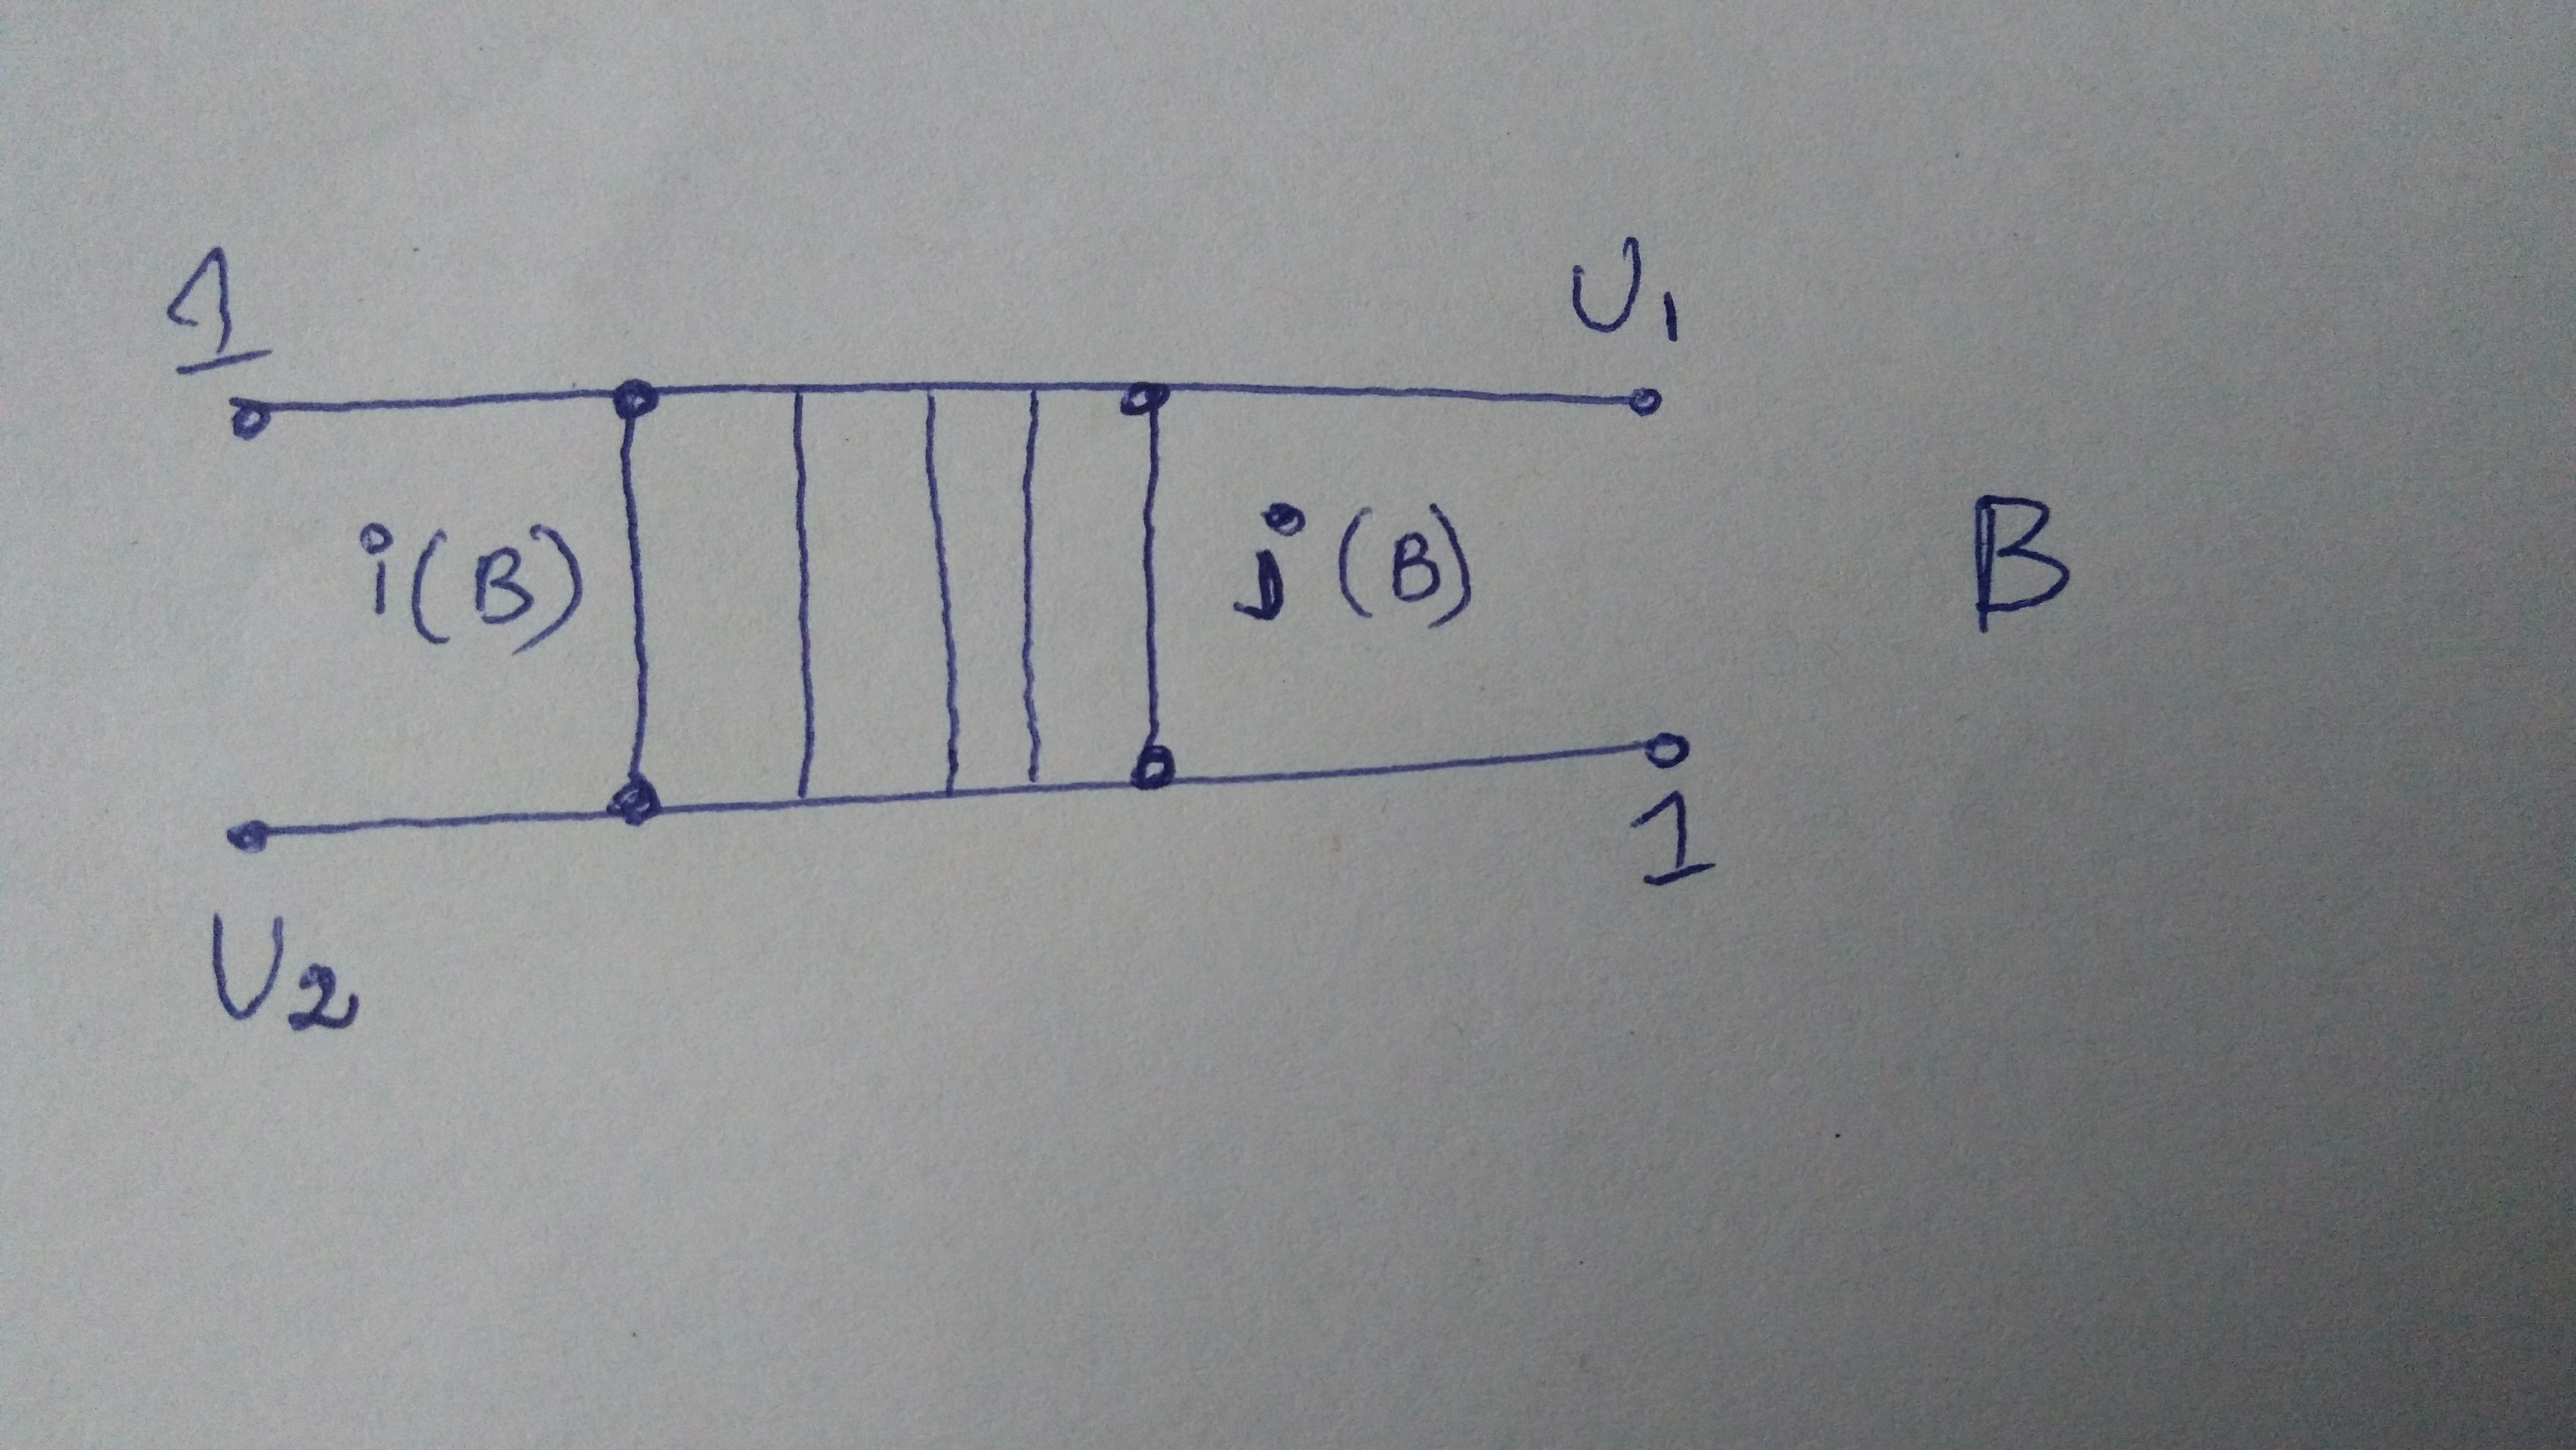 1
U₁
i(B)
j(B)
B
U₂
1